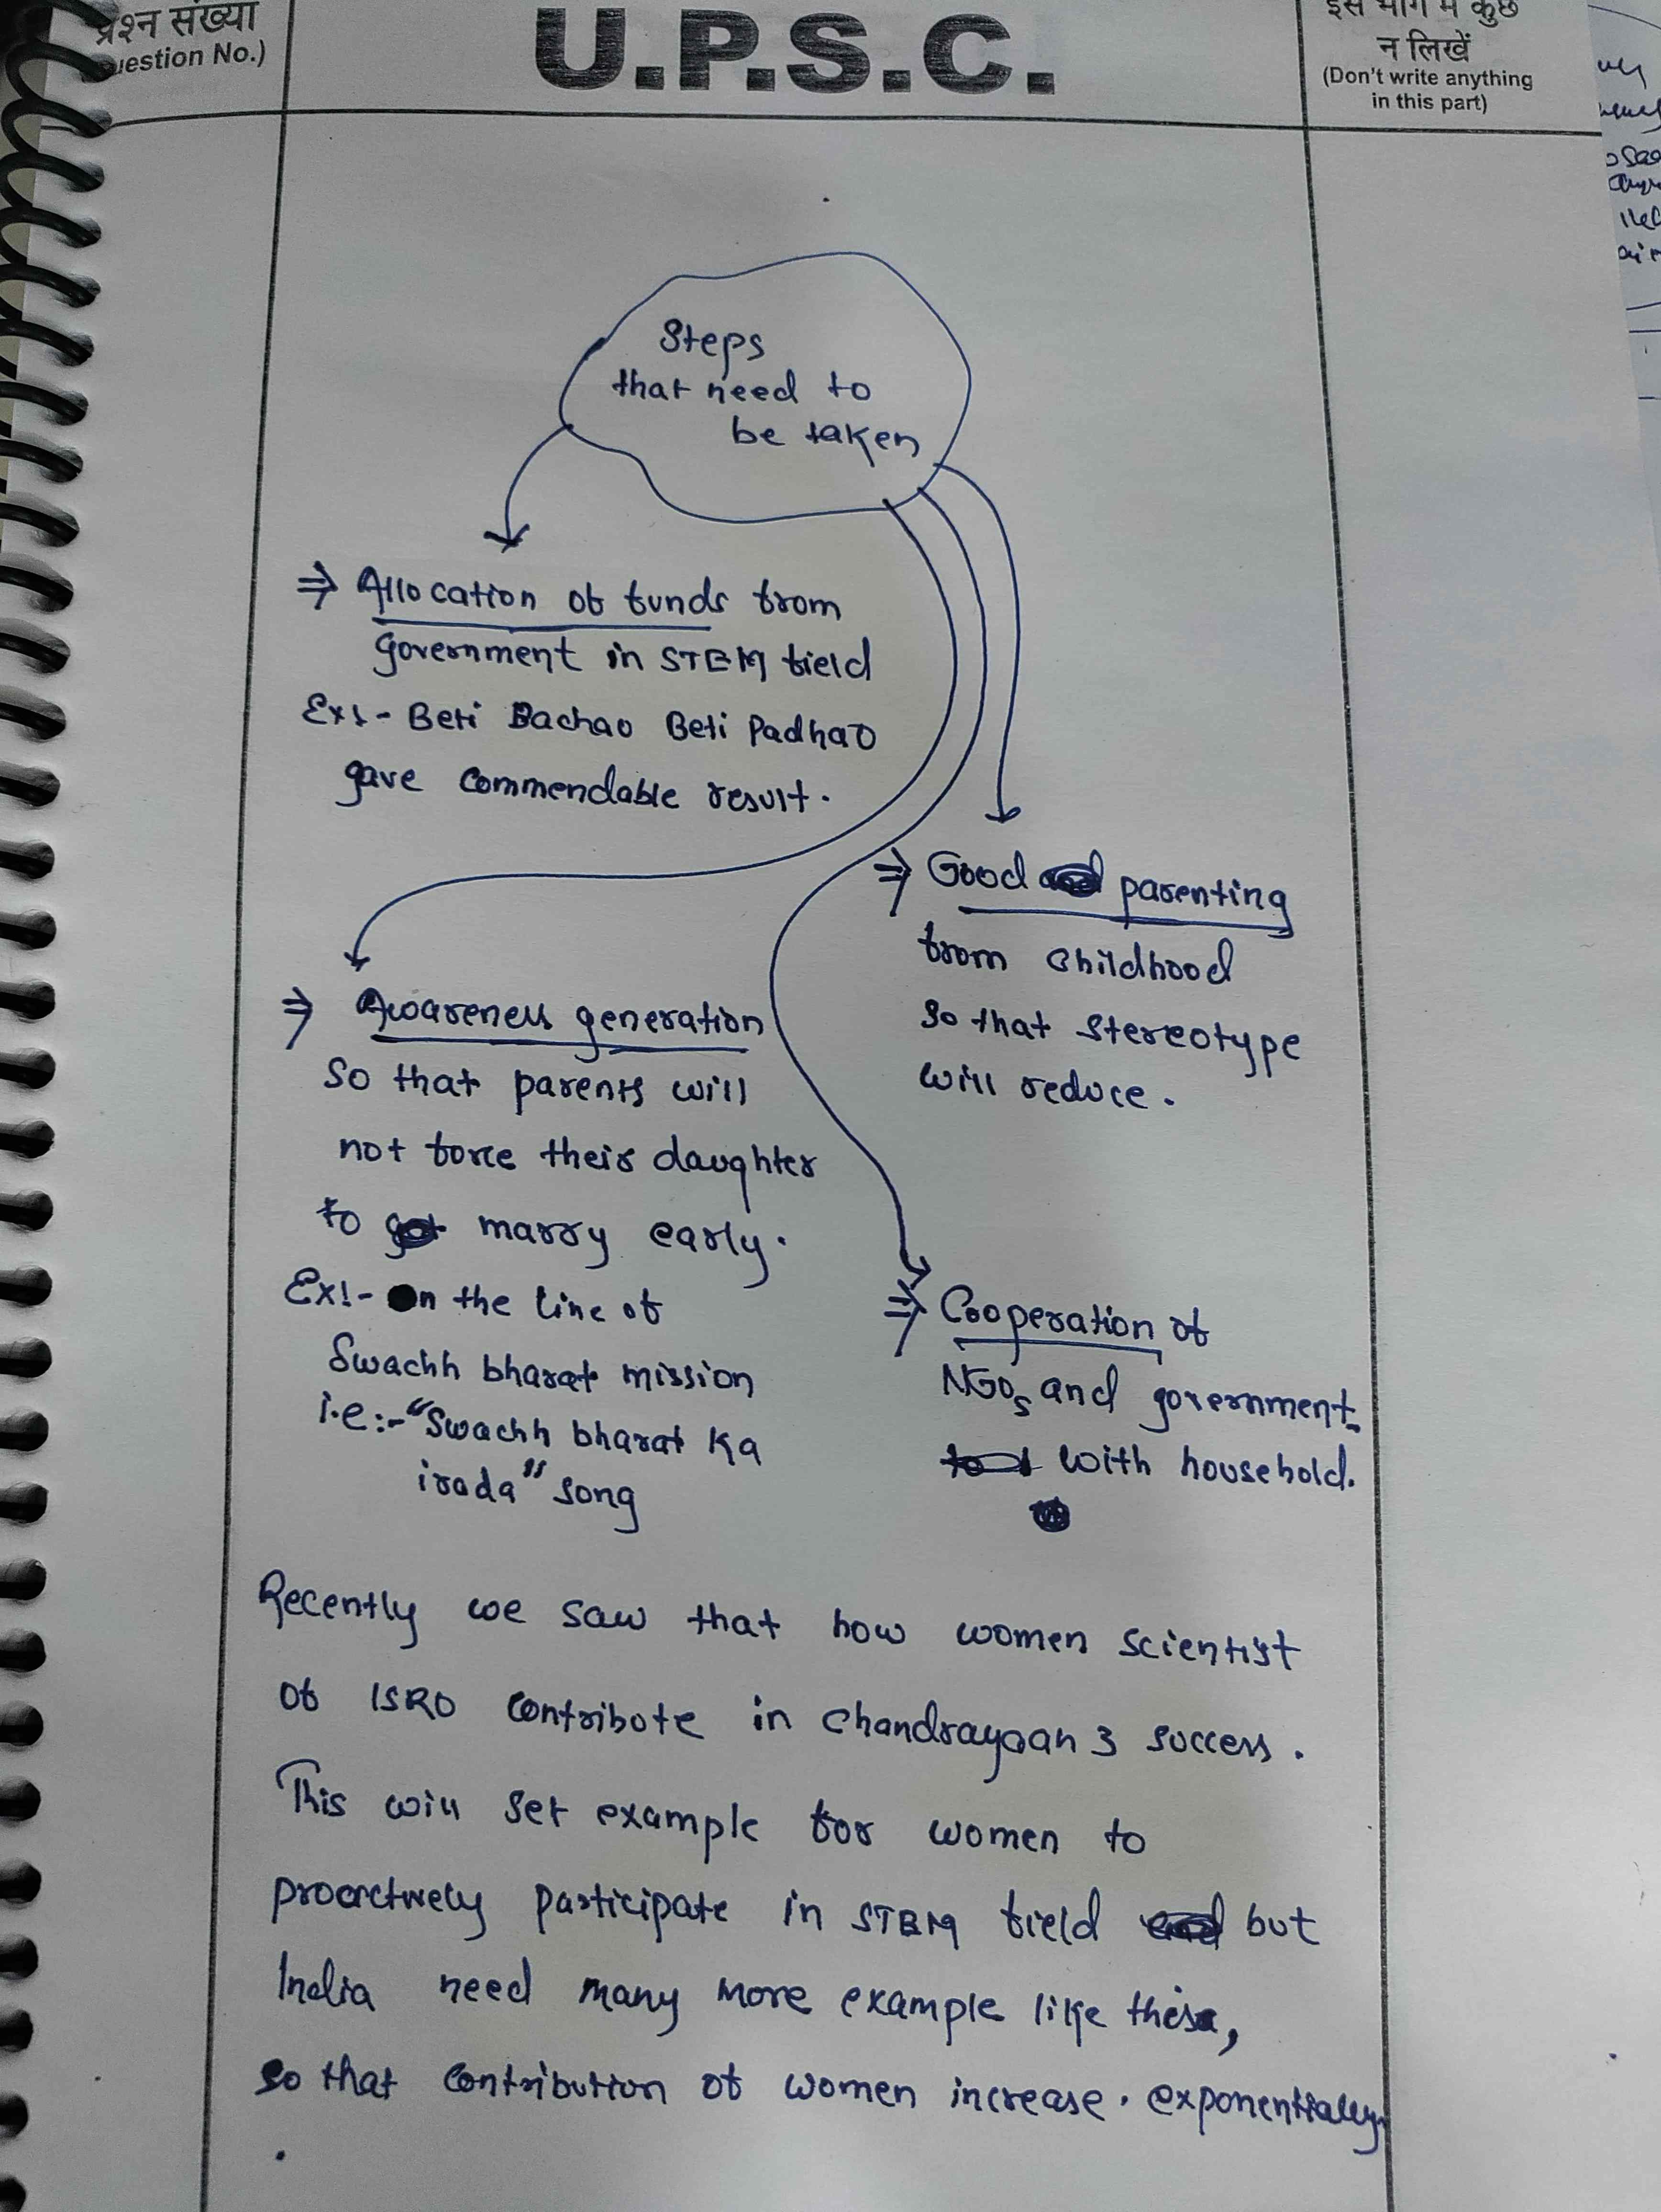 प्रश्न संख्या
(Question No.)
U.P.S.C.
इस भाग में कुछ
न लिखें
(Don't write anything
in this part)
Steps
that need to
be taken
⇒ Allocation of funds from
government in STEM field
Ex:- Beti Bachao Beti Padhao
gave commendable result.
⇒ Good parenting
from childhood
so that stereotype
will reduce.
⇒ Awareness generation
so that parents will
not force their daughter
to marry early.
Ex:- On the line of
Swachh bharat mission
i.e:- "Swachh bharat ka
irada" song
⇒ Cooperation of
NGOs and government
with household.
Recently we saw that how women scientist
of ISRO contribute in Chandrayaan 3 success.
This will set example for women to
proactively participate in STEM field but
India need many more example like this,
so that contribution of women increase. exponentially.